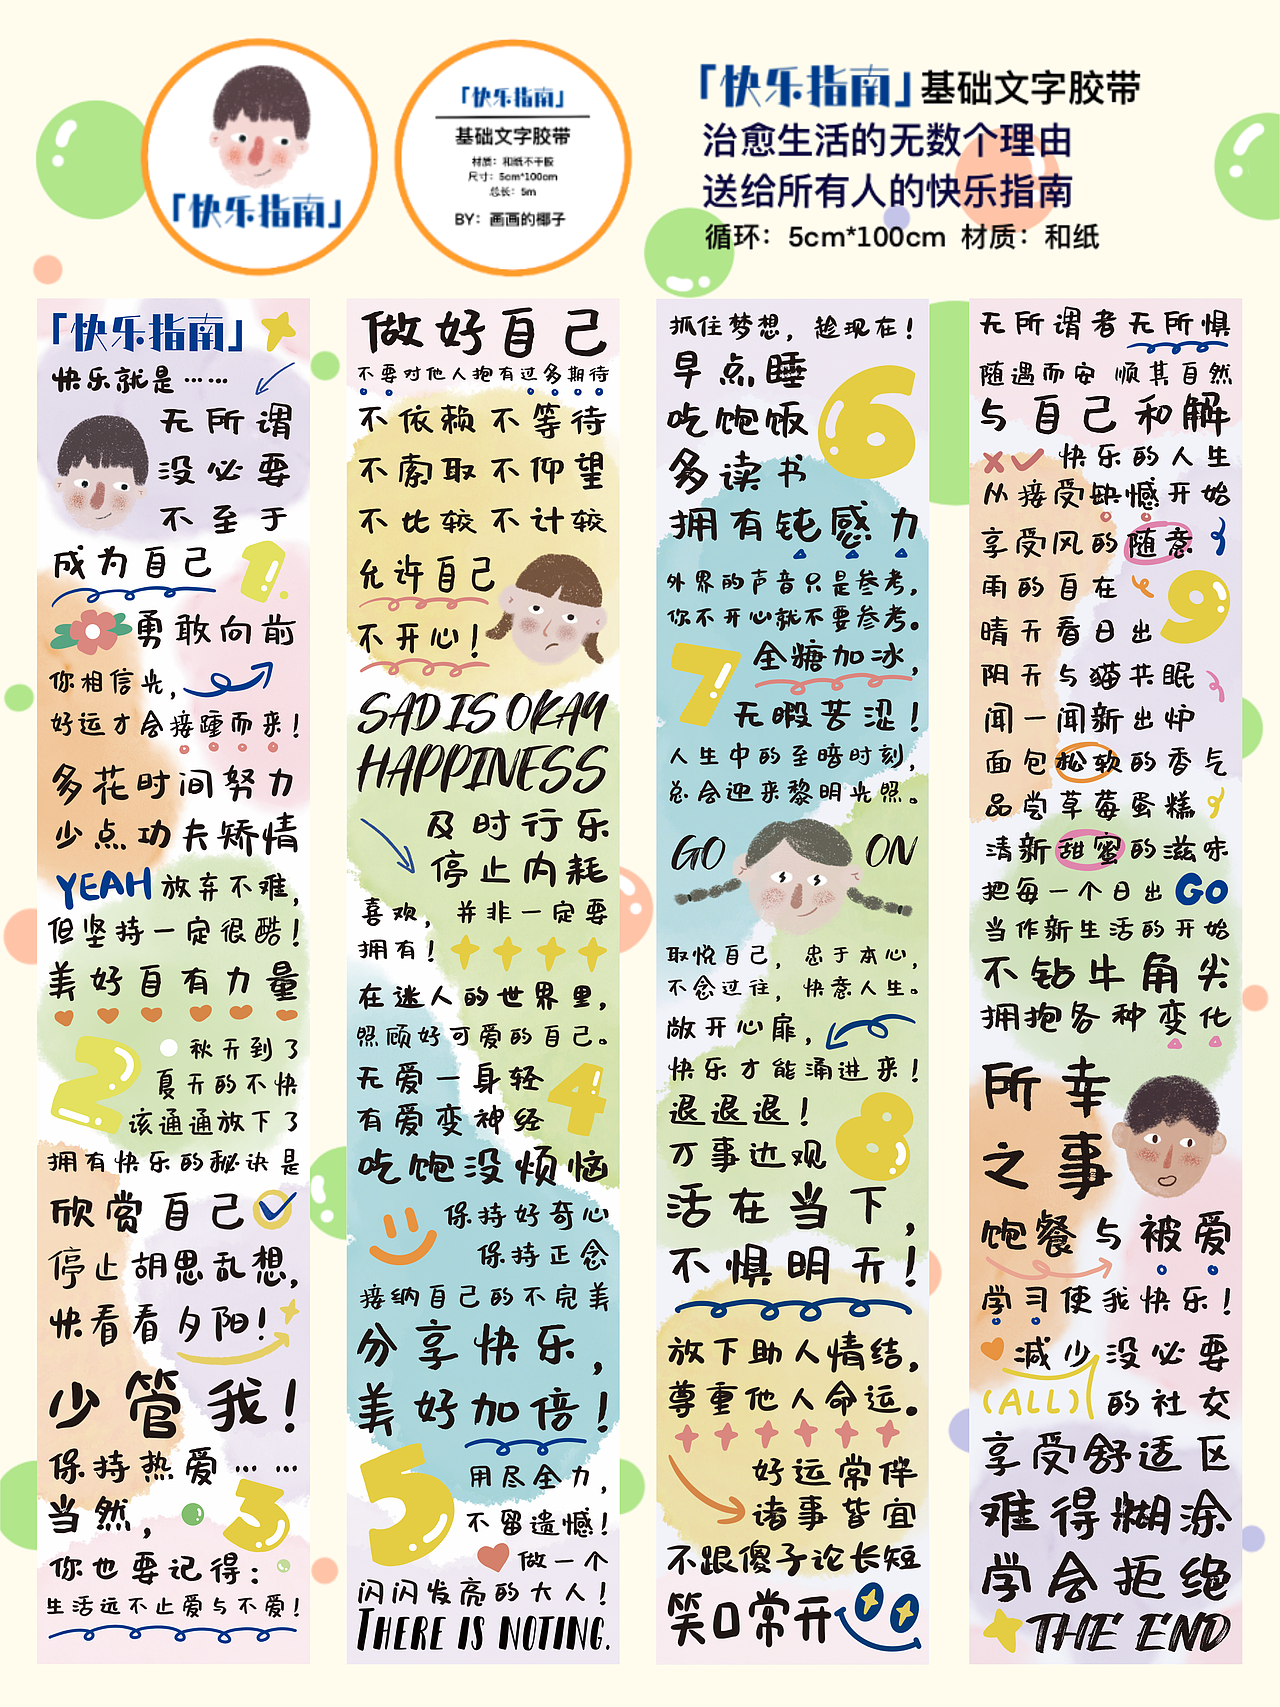 「快乐指南」
「快乐指南」
基础文字胶带
材质：和纸不干胶
尺寸：5cm*100cm
总长：5m
BY：画画的椰子
「快乐指南」基础文字胶带
治愈生活的无数个理由
送给所有人的快乐指南
循环：5cm*100cm 材质：和纸
「快乐指南」
快乐就是……
无所谓
没必要
不至于
成为自己
1.
勇敢向前
你相信光，
好运才会接踵而来！
多花时间努力
少点功夫矫情
YEAH 放弃不难，
但坚持一定很酷！
美好自有力量
2
秋天到了
夏天的不快
该通通放下了
拥有快乐的秘诀是
欣赏自己
停止胡思乱想，
快看看夕阳！
少管我！
保持热爱……
当然，
3
你也要记得：
生活远不止爱与不爱！
做好自己
不要对他人抱有过多期待
不依赖不等待
不索取不仰望
不比较不计较
允许自己
不开心！
SAD IS OKAY
HAPPINESS
及时行乐
停止内耗
喜欢，并非一定要
拥有！
在迷人的世界里，
照顾好可爱的自己。
无爱一身轻
有爱变神经
4
吃饱没烦恼
保持好奇心
保持正念
接纳自己的不完美
分享快乐，
美好加倍！
5
用尽全力，
不留遗憾！
做一个
闪闪发亮的大人！
THERE IS NOTING.
抓住梦想，趁现在！
早点睡
吃饱饭
多读书
6
拥有钝感力
外界的声音只是参考，
你不开心就不要参考。
7
全糖加冰，
无暇苦涩！
人生中的至暗时刻，
总会迎来黎明光照。
GO ON
取悦自己，忠于本心，
不念过往，快意人生。
敞开心扉，
快乐才能涌进来！
退退退！
万事边观
8
活在当下，
不惧明天！
放下助人情结，
尊重他人命运。
好运常伴
诸事皆宜
不跟傻子论长短
笑口常开
无所谓者无所惧
随遇而安 顺其自然
与自己和解
快乐的人生
从接受缺憾开始
享受风的随意
雨的自在
晴天看日出
9
阴天与猫共眠
闻一闻新出炉
面包松软的香气
品尝草莓蛋糕
清新甜蜜的滋味
把每一个日出 GO
当作新生活的开始
不钻牛角尖
拥抱各种变化
所幸
之事
饱餐与被爱
学习使我快乐！
减少没必要
(ALL) 的社交
享受舒适区
难得糊涂
学会拒绝
THE END